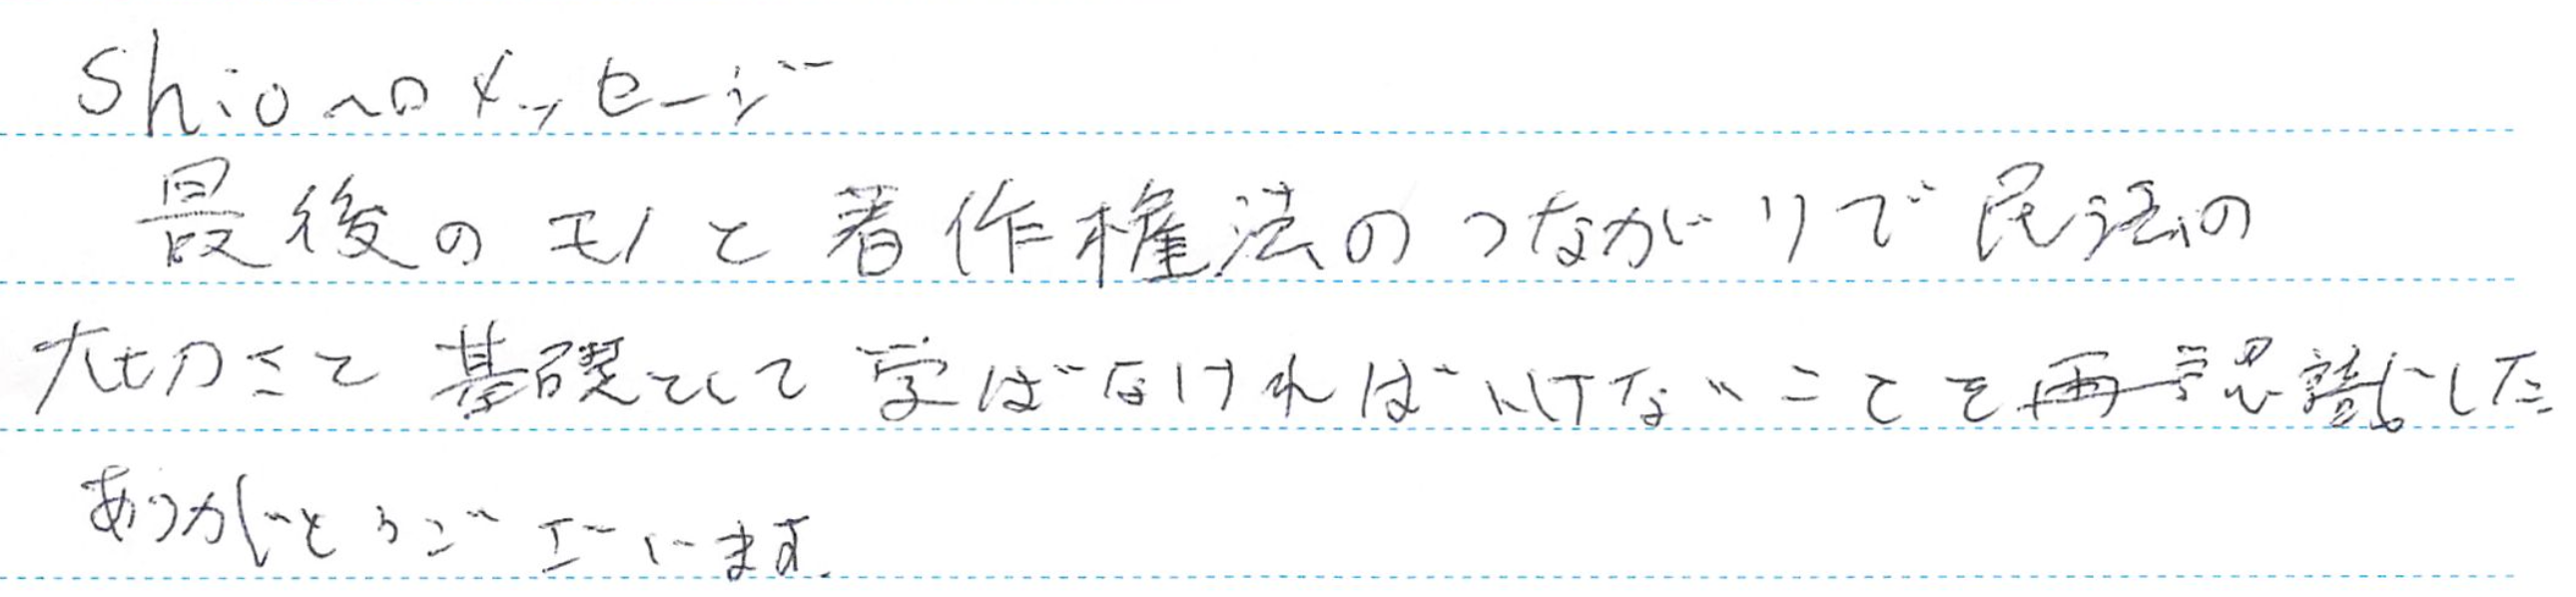 Shioへのメッセージ
最後のモノと著作権法のつながりで民法の
大切さと基礎として学ばなければいけないことを再認識した
ありがとうございます.